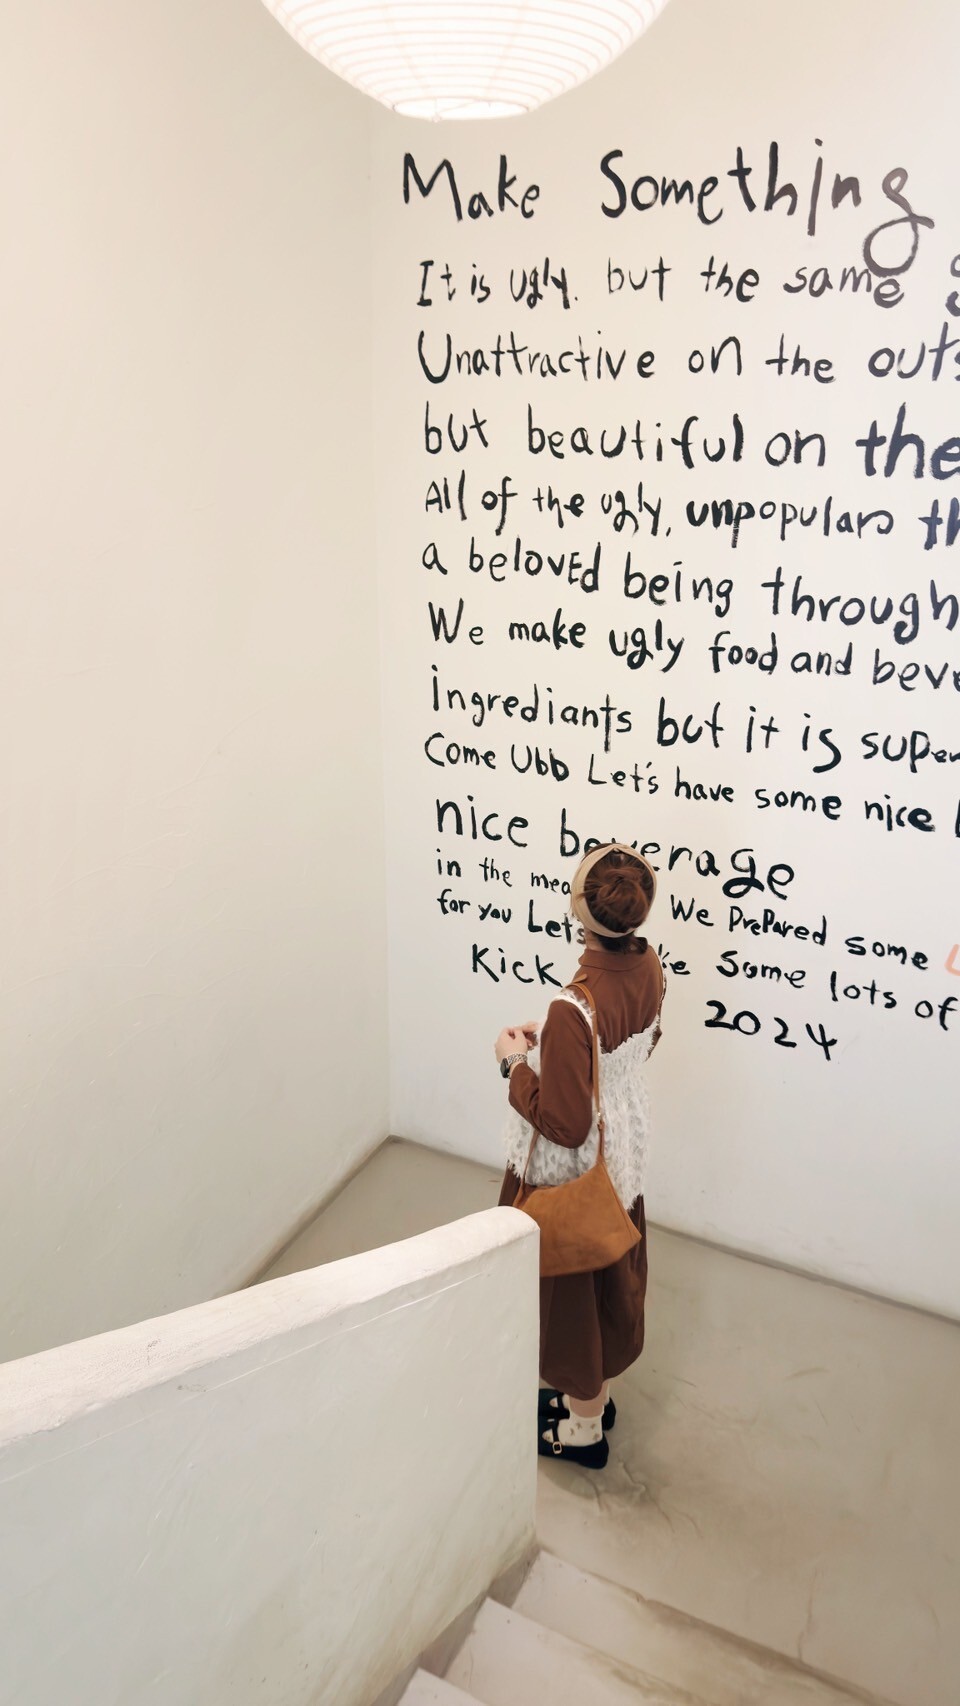 Make Something
It is ugly. but the same
Unattractive on the
but beautiful on the
All of the ugly, unpopular
a beloved being through
We make ugly food and
ingrediants but it is
Come Ubb Let's have some nice
nice beverage
in the We Prepared some
for you Let's some lots of
Kick 2024